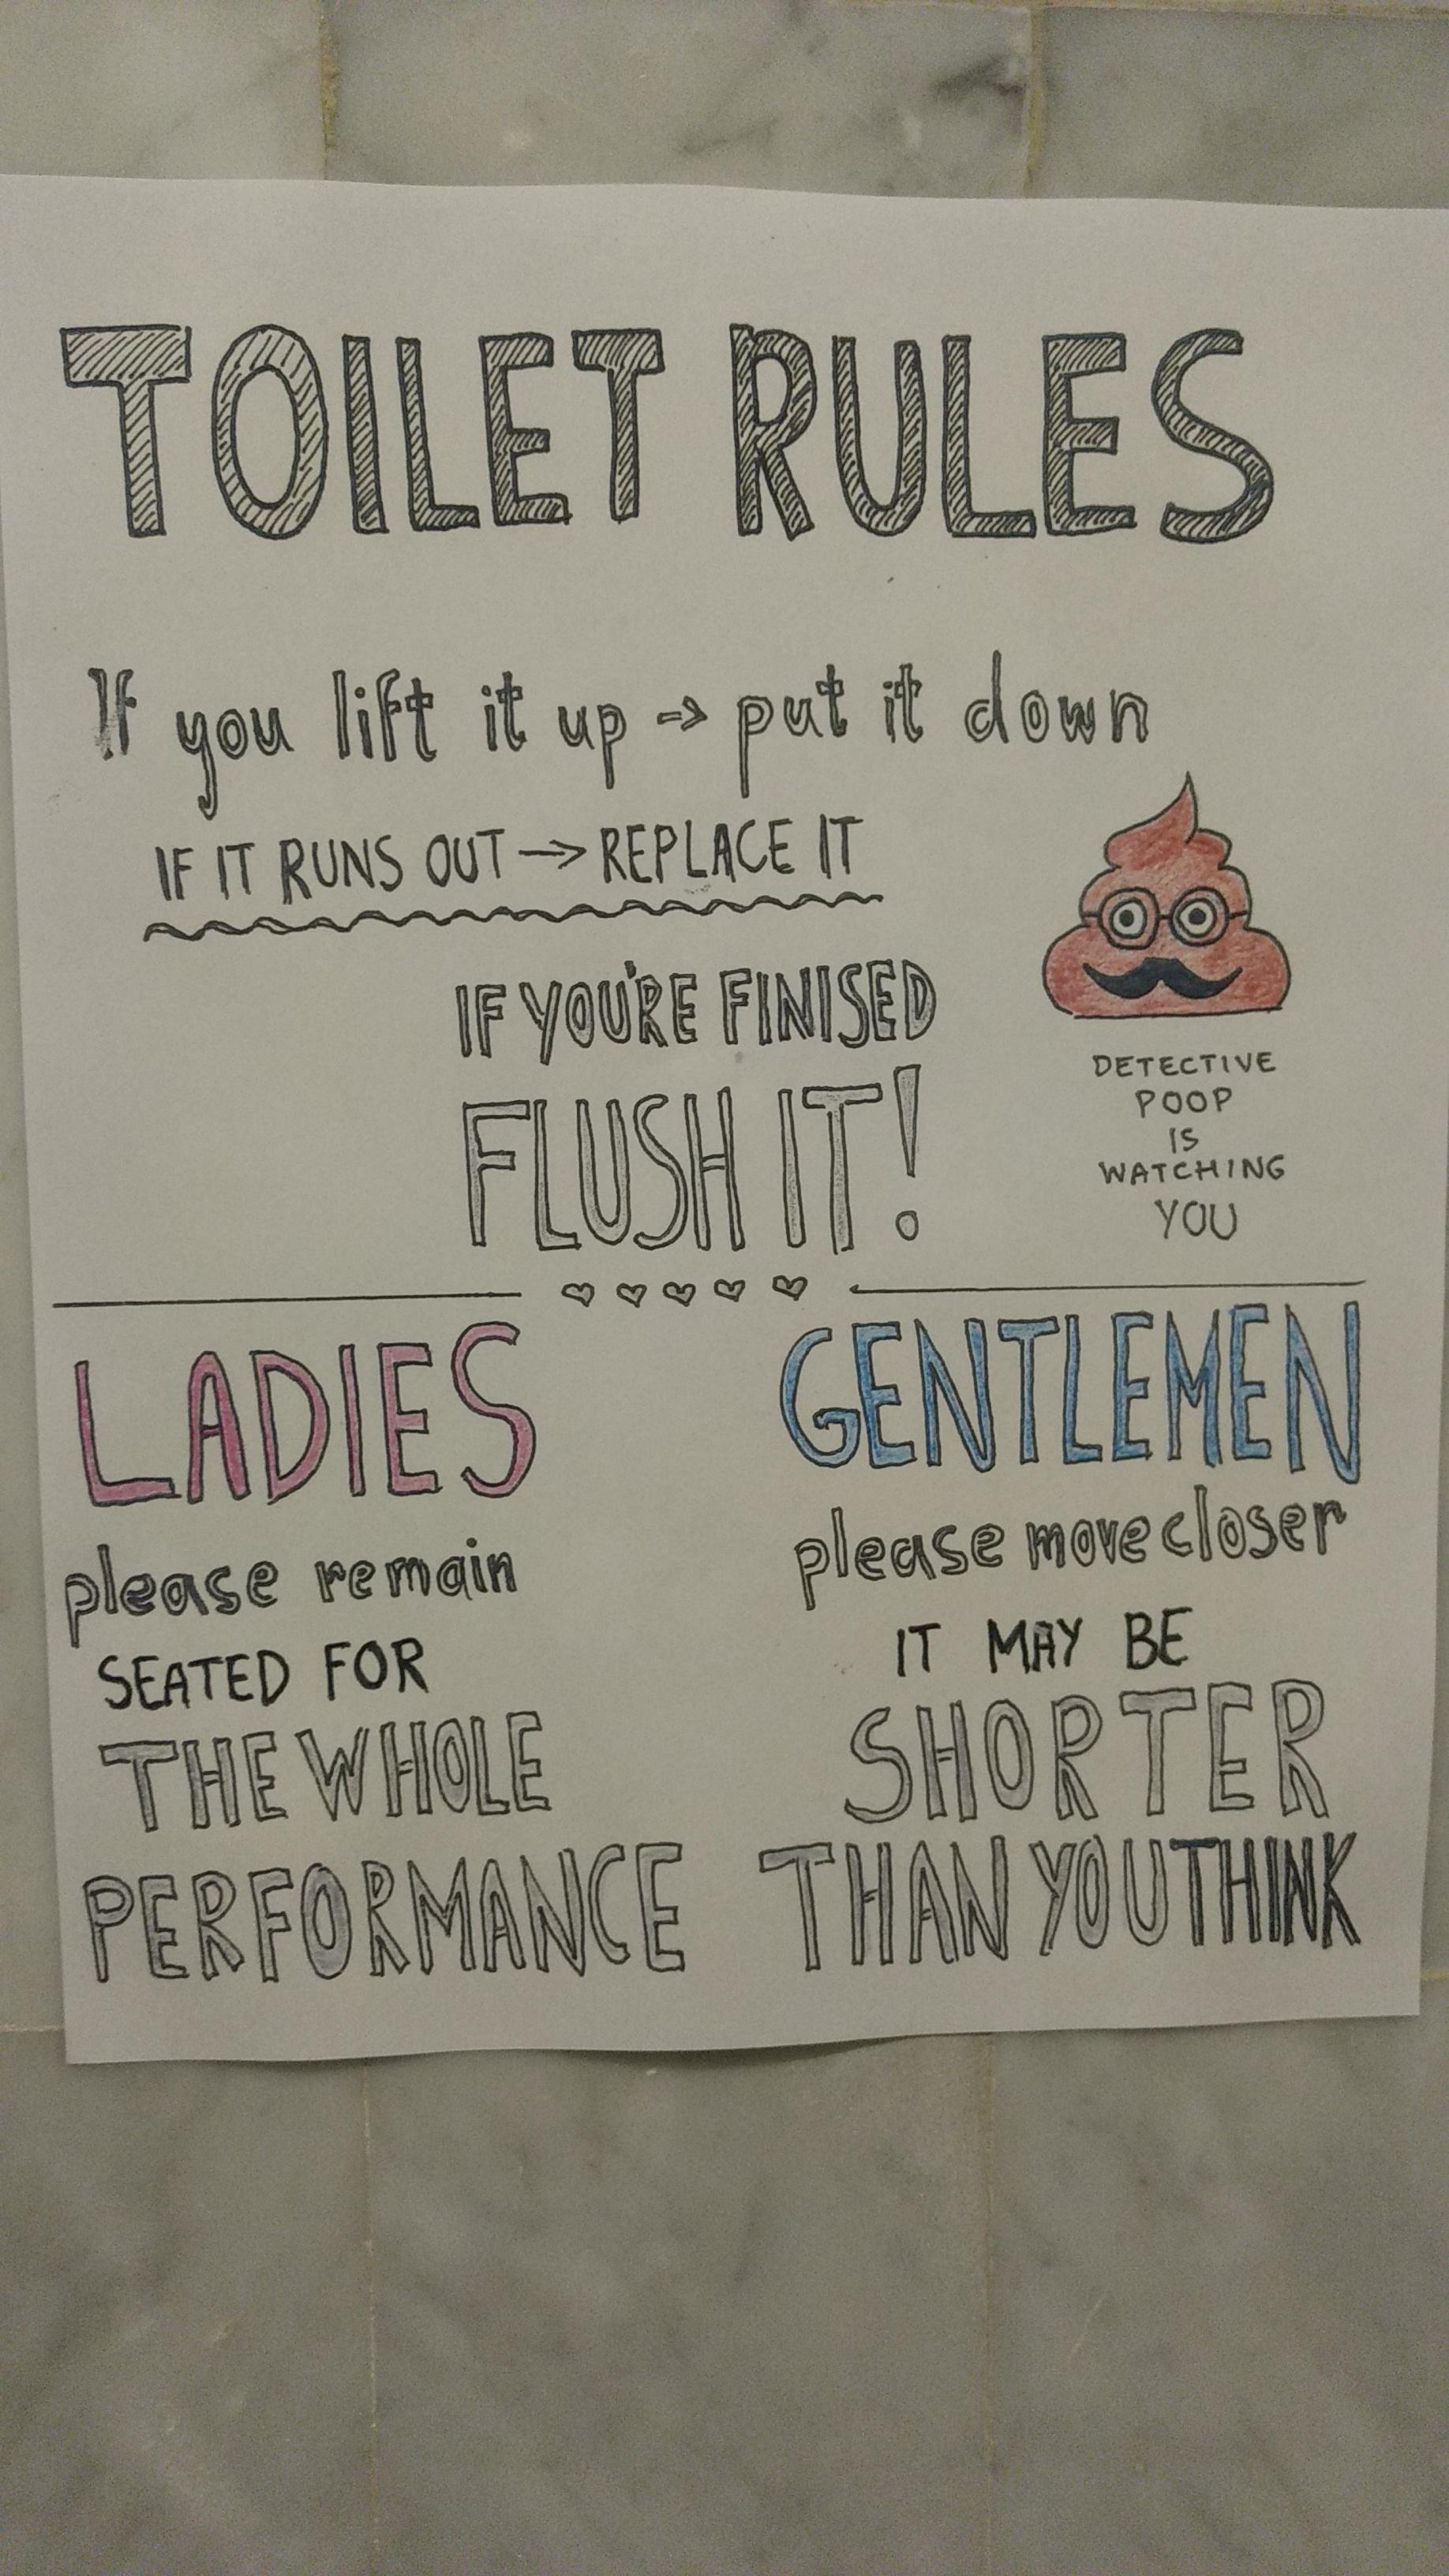 TOILET RULES
If you lift it up → put it down
IF IT RUNS OUT → REPLACE IT
IF YOU'RE FINISED
FLUSH IT!
DETECTIVE
POOP
IS
WATCHING
YOU
LADIES
please remain
SEATED FOR
THE WHOLE
PERFORMANCE
GENTLEMEN
please move closer
IT MAY BE
SHORTER
THAN YOU THINK